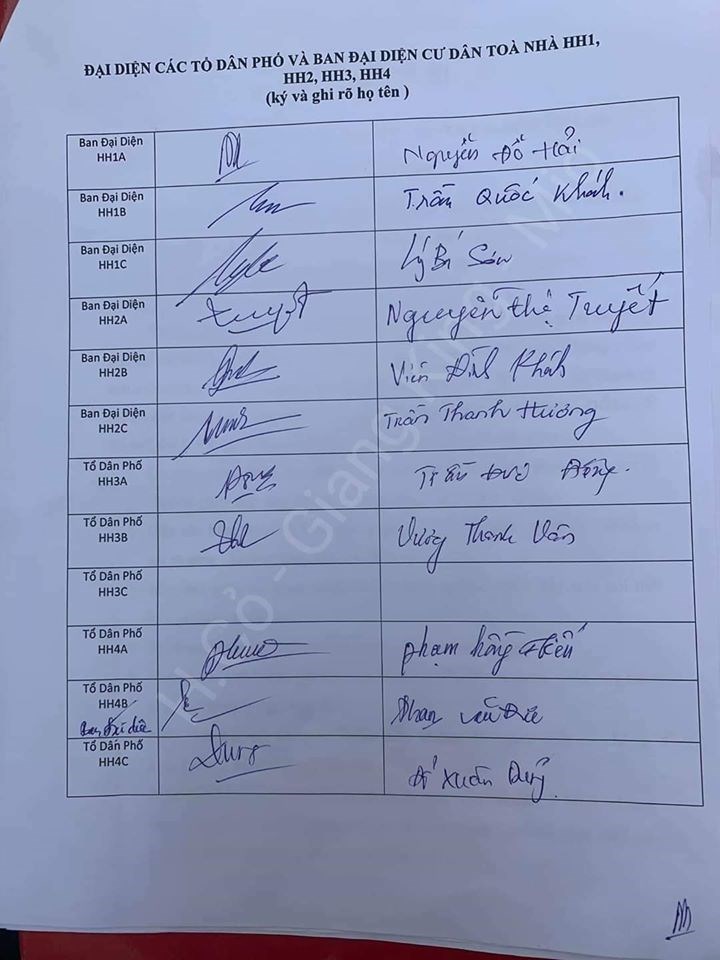 ĐẠI DIỆN CÁC TỔ DÂN PHỐ VÀ BAN ĐẠI DIỆN CƯ DÂN TOÀ NHÀ HH1,
HH2, HH3, HH4
(ký và ghi rõ họ tên )
Ban Đại Diện
HH1A
Nguyễn Đỗ Hải
Ban Đại Diện
HH1B
Trần Quốc Khánh.
Ban Đại Diện
HH1C
Lý Bá Sơn
Ban Đại Diện
HH2A
Nguyễn Thị Truyết
Ban Đại Diện
HH2B
Viên Đình Khánh
Ban Đại Diện
HH2C
Trần Thanh Hương
Tổ Dân Phố
HH3A
Trần Đông.
Tổ Dân Phố
HH3B
Vương Thanh Vân
Tổ Dân Phố
HH3C
Tổ Dân Phố
HH4A
Phạm hồng
Tổ Dân Phố
HH4B
Ban Đại diện
Phan văn
Tổ Dân Phố
HH4C
Dung
Đỗ Xuân
H.Gỏ - Giang